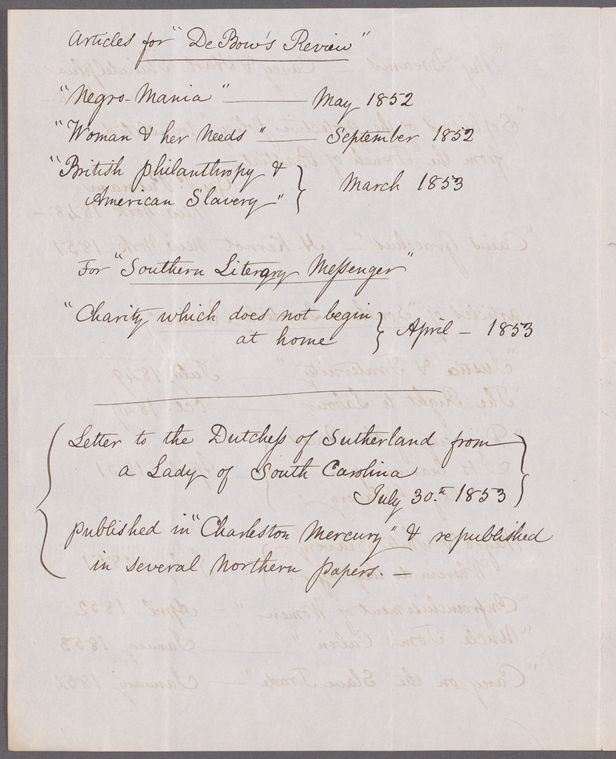 Articles for "DeBow's Review"
"Negro-Mania" — May 1852
"Woman & her Needs" — September 1852
"British philanthropy &
American Slavery" } March 1853
For "Southern Literary Messenger"
"Charity which does not begin
at home } April – 1853
Letter to the Dutchess of Sutherland from
a Lady of South Carolina
July 30.th 1853
published in "Charleston Mercury" & republished
in several Northern papers. —